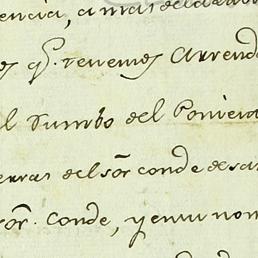 encia, a mas de la
es q.e tenemos Arrend
l Rumbo del Ponien
erras del s.or conde de sa
s.or Conde, y en su nom